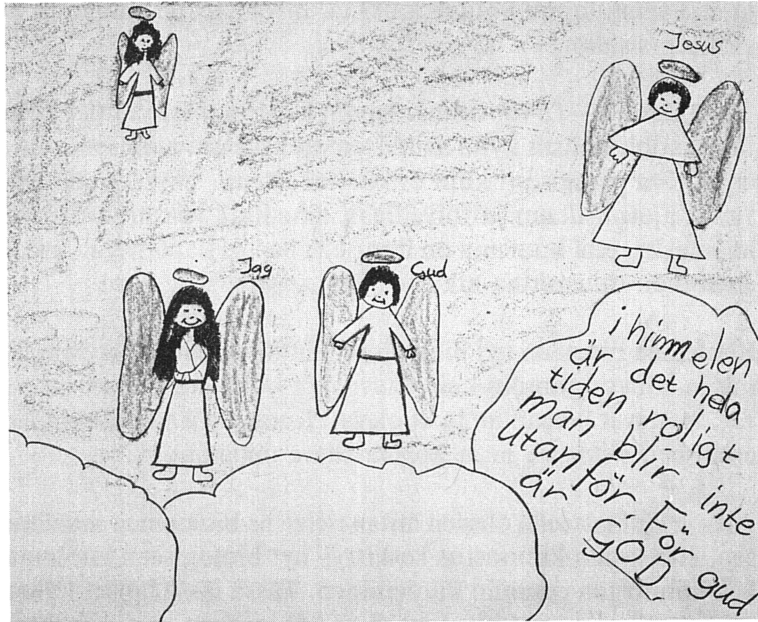 Jesus
Jag
Gud
i himmelen
är det hela
tiden roligt
man blir inte
utanför För gud
är GOD.